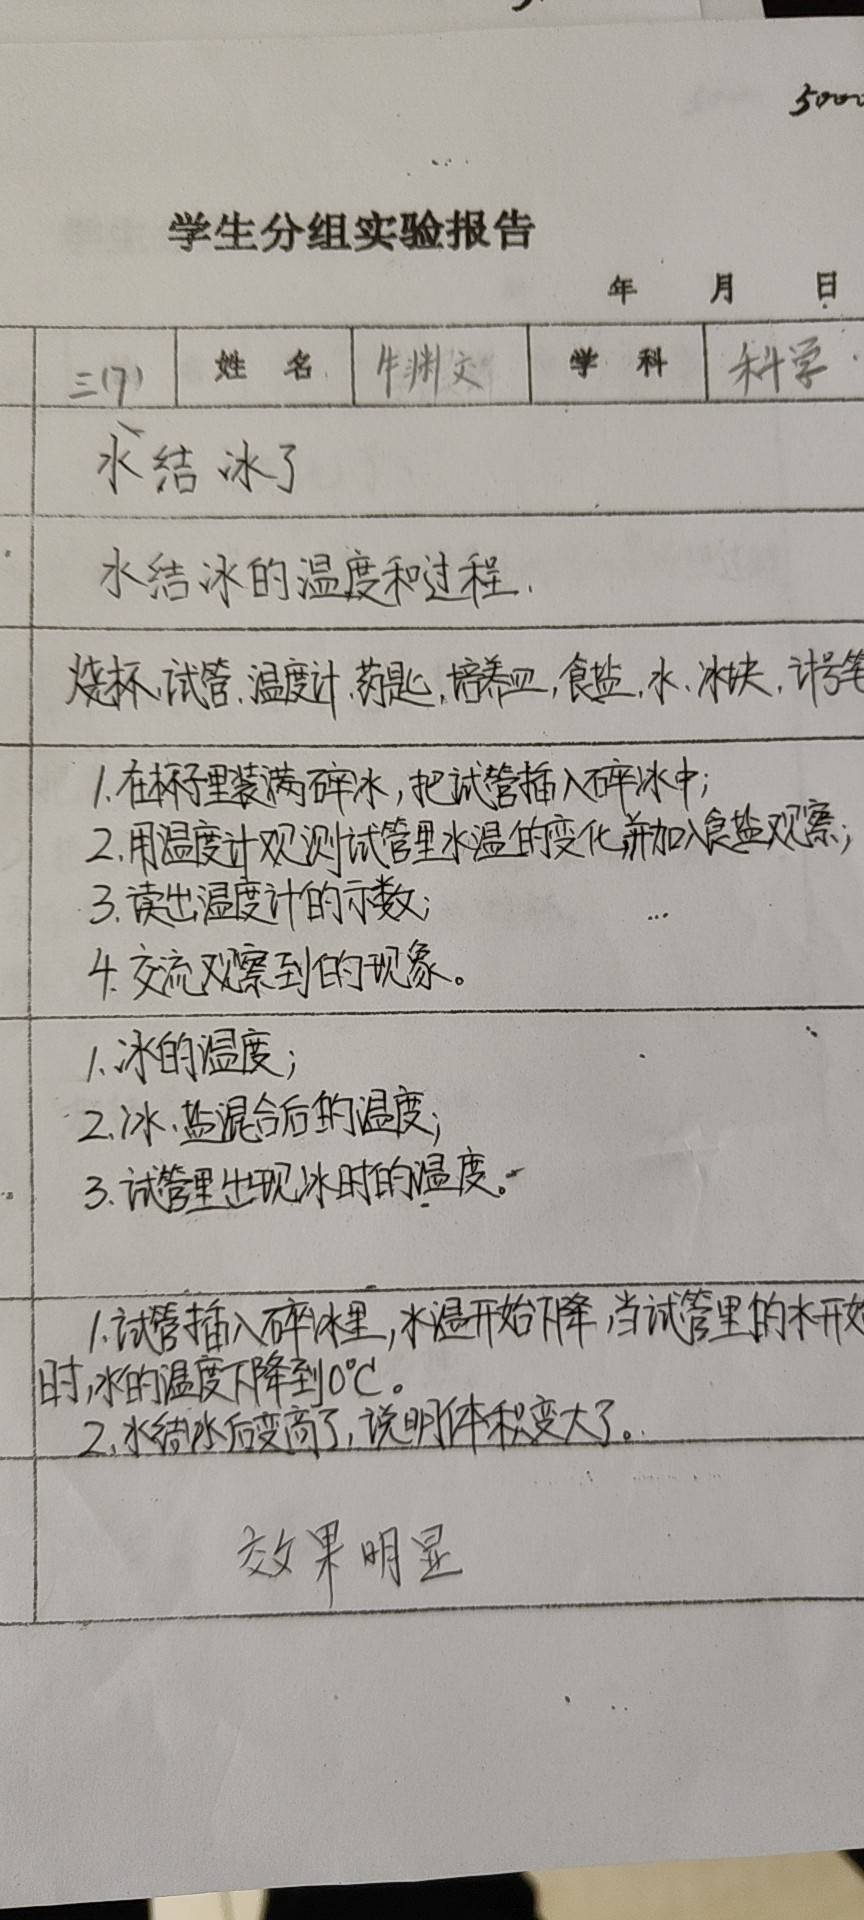 5000
学生分组实验报告
年 月 日
三(7) 姓 名 牛渊文 学 科 科学
水结冰了
水结冰的温度和过程.
烧杯、试管、温度计、药匙、培养皿,食盐、水、冰块、计号笔
1.在杯子里装满碎冰,把试管插入碎冰中;
2.用温度计观测试管里水温的变化并加入食盐观察;
3.读出温度计的示数;
4.交流观察到的现象。
1.冰的温度;
2.冰、盐混合后的温度;
3.试管里出现冰时的温度。
1.试管插入碎冰里,水温开始下降,当试管里的水开始
时,水的温度下降到0℃。
2.水结冰后变高了,说明体积变大了。
效果明显